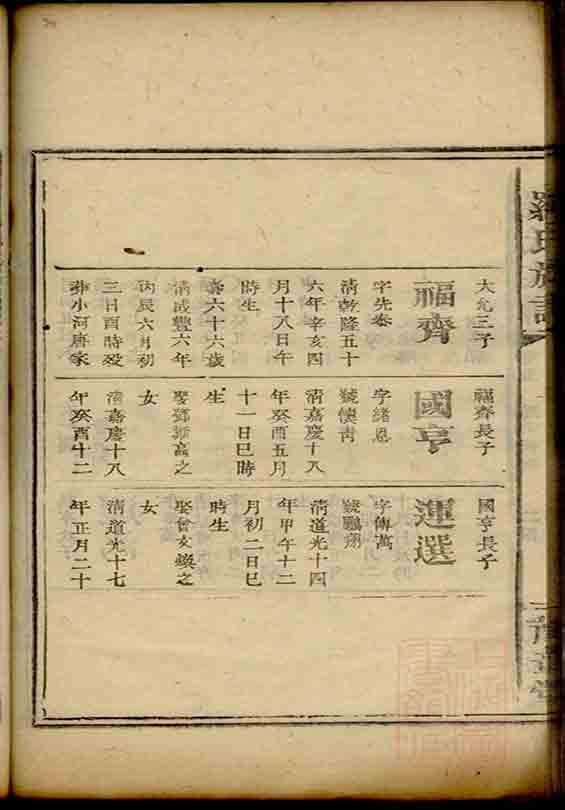 羅氏族譜
大允三子
福齊
字先泰
清乾隆五十
六年辛亥四
月十八日午
時生
壽六十六歲
清咸豐六年
丙辰六月初
三日酉時歿
葬小河唐家
福齊長子
國亨
字緒恩
號懷青
清嘉慶十八
年癸酉五月
十一日巳時
生
娶鄧斯高之
女
清嘉慶十八
年癸酉十二
國亨長子
運選
字傳萬
號鵬翔
清道光十四
年甲午十二
月初二日巳
時生
娶曾友煥之
女
清道光十七
年正月二十